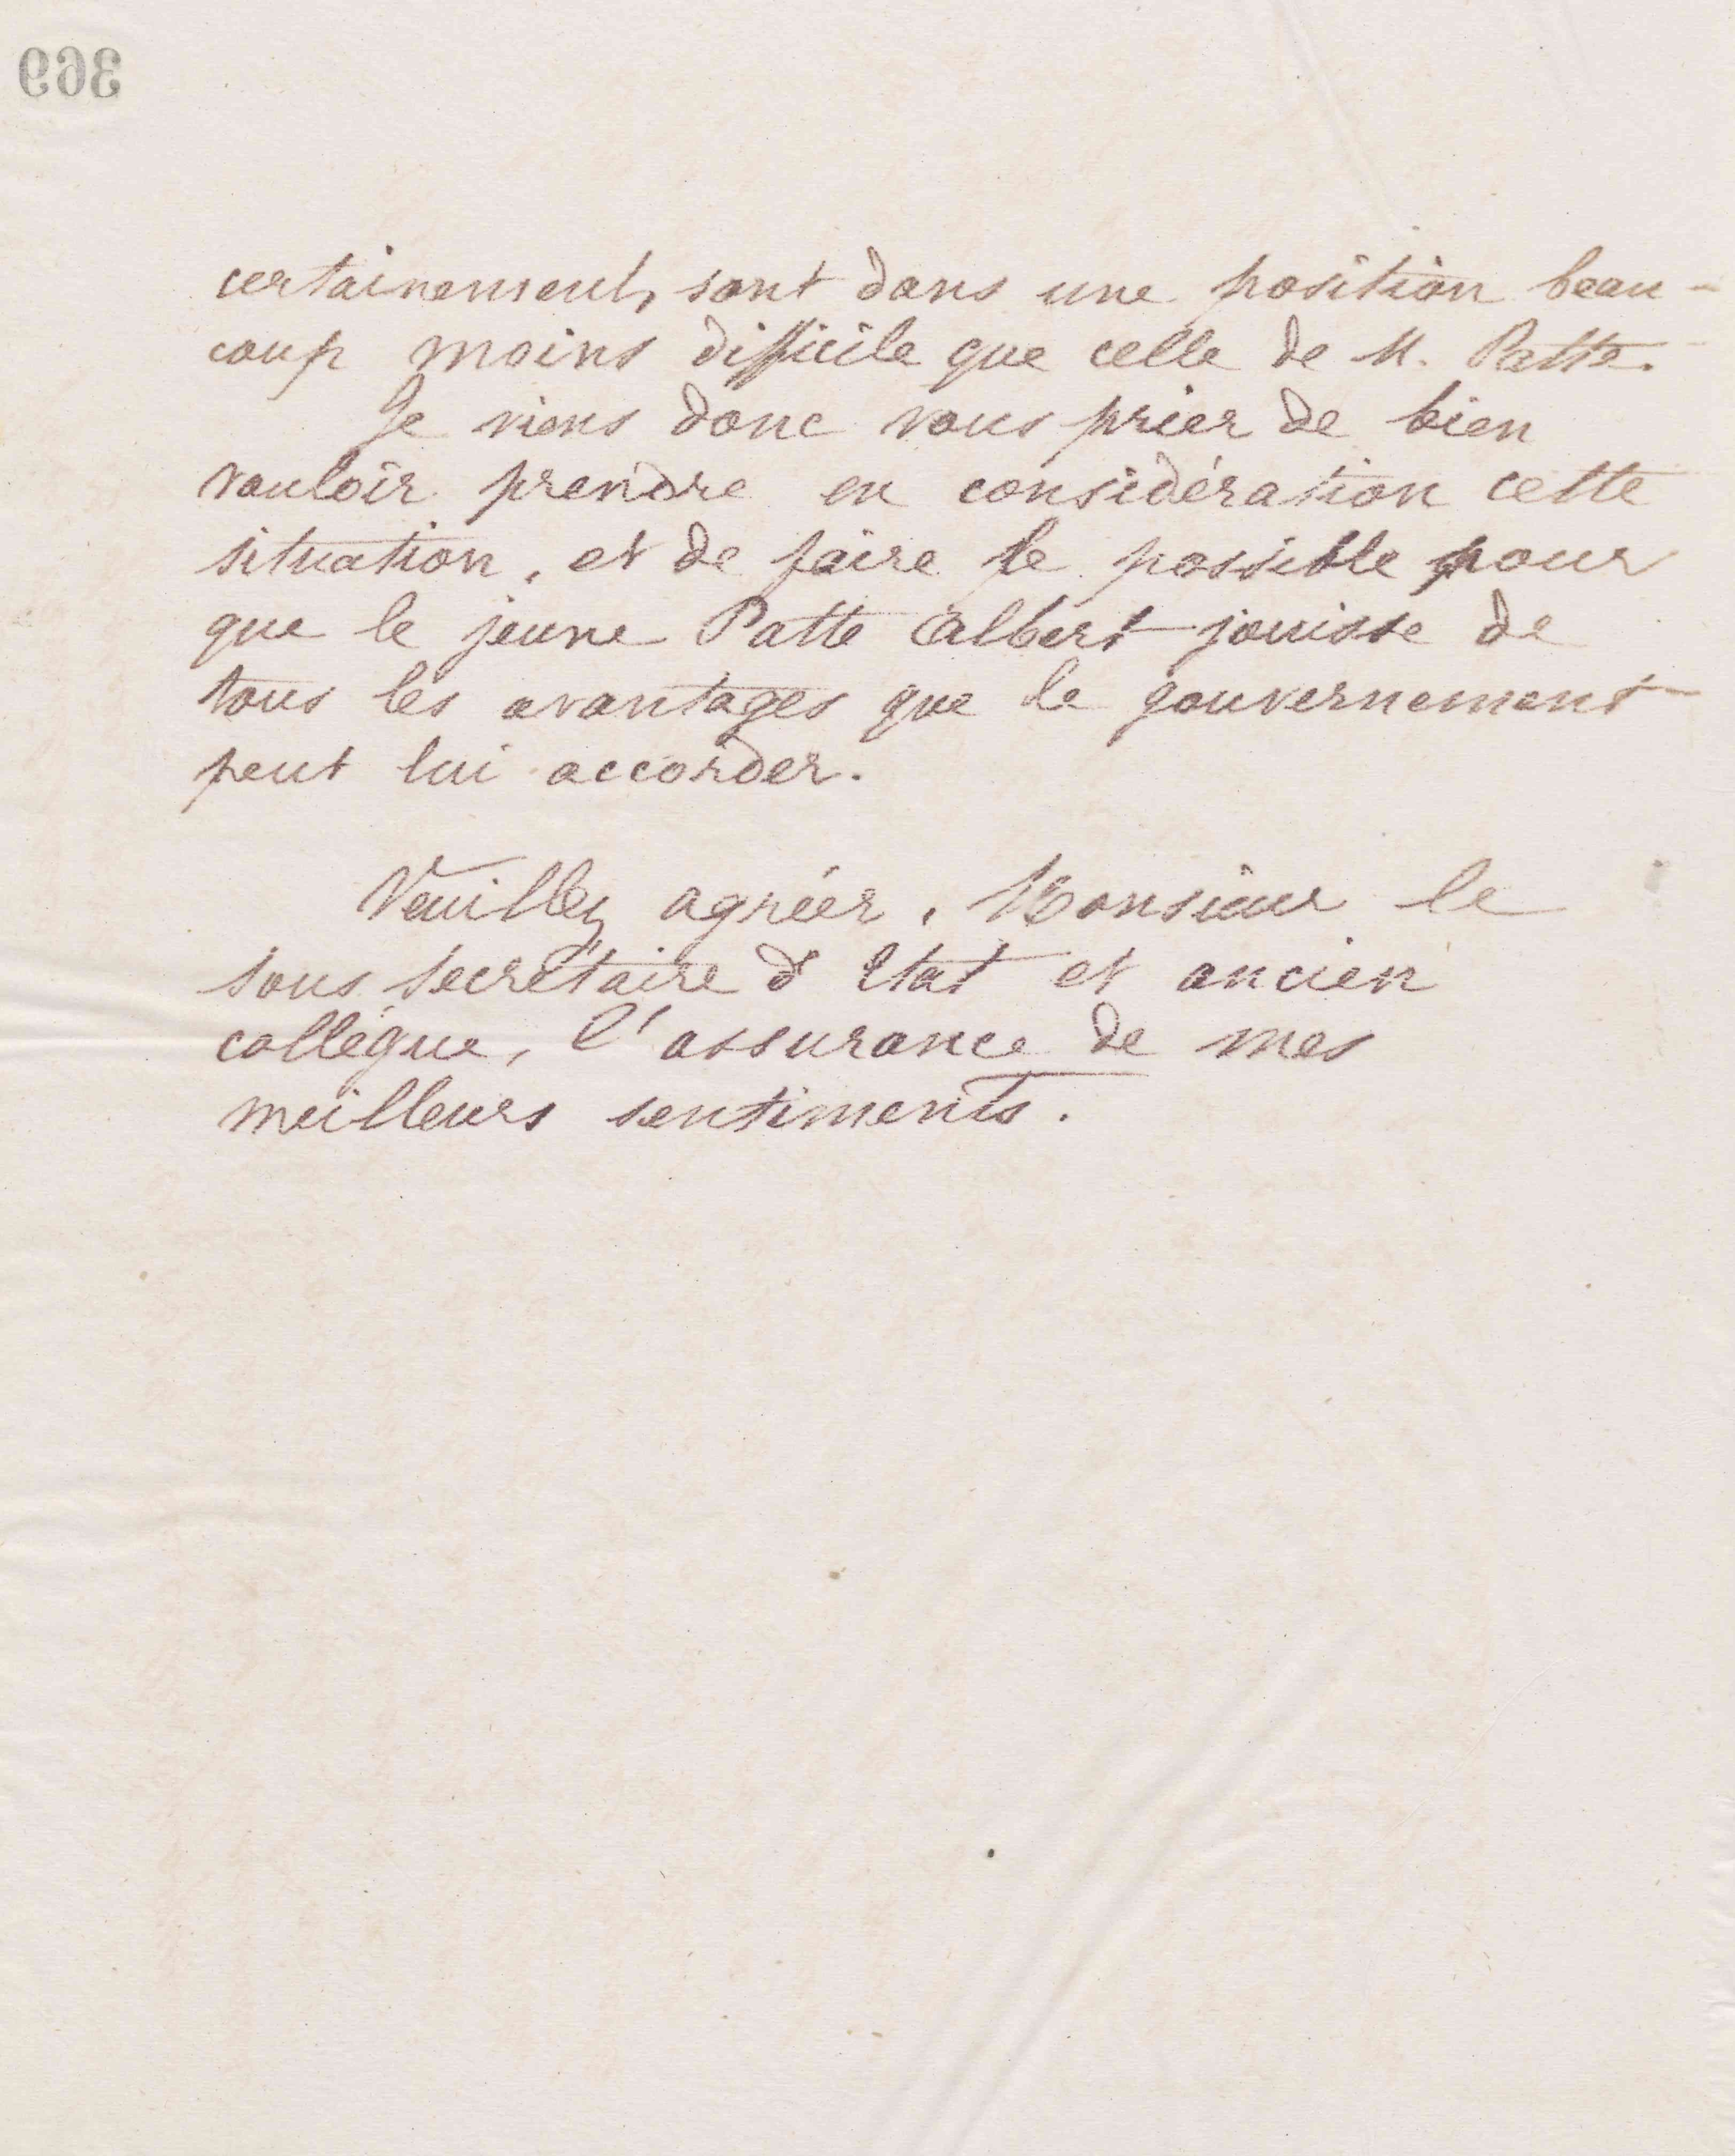 369
certainement, sont dans une position beau-
coup moins difficile que celle de M. Patte.
Je viens donc vous prier de bien
vouloir prendre en considération cette
situation, et de faire le possible pour
que le jeune Patte Albert jouisse de
tous les avantages que le gouvernement
peut lui accorder.
Veuillez agréer, Monsieur le
sous secrétaire d'Etat et ancien
collègue, l'assurance de mes
meilleurs sentiments.